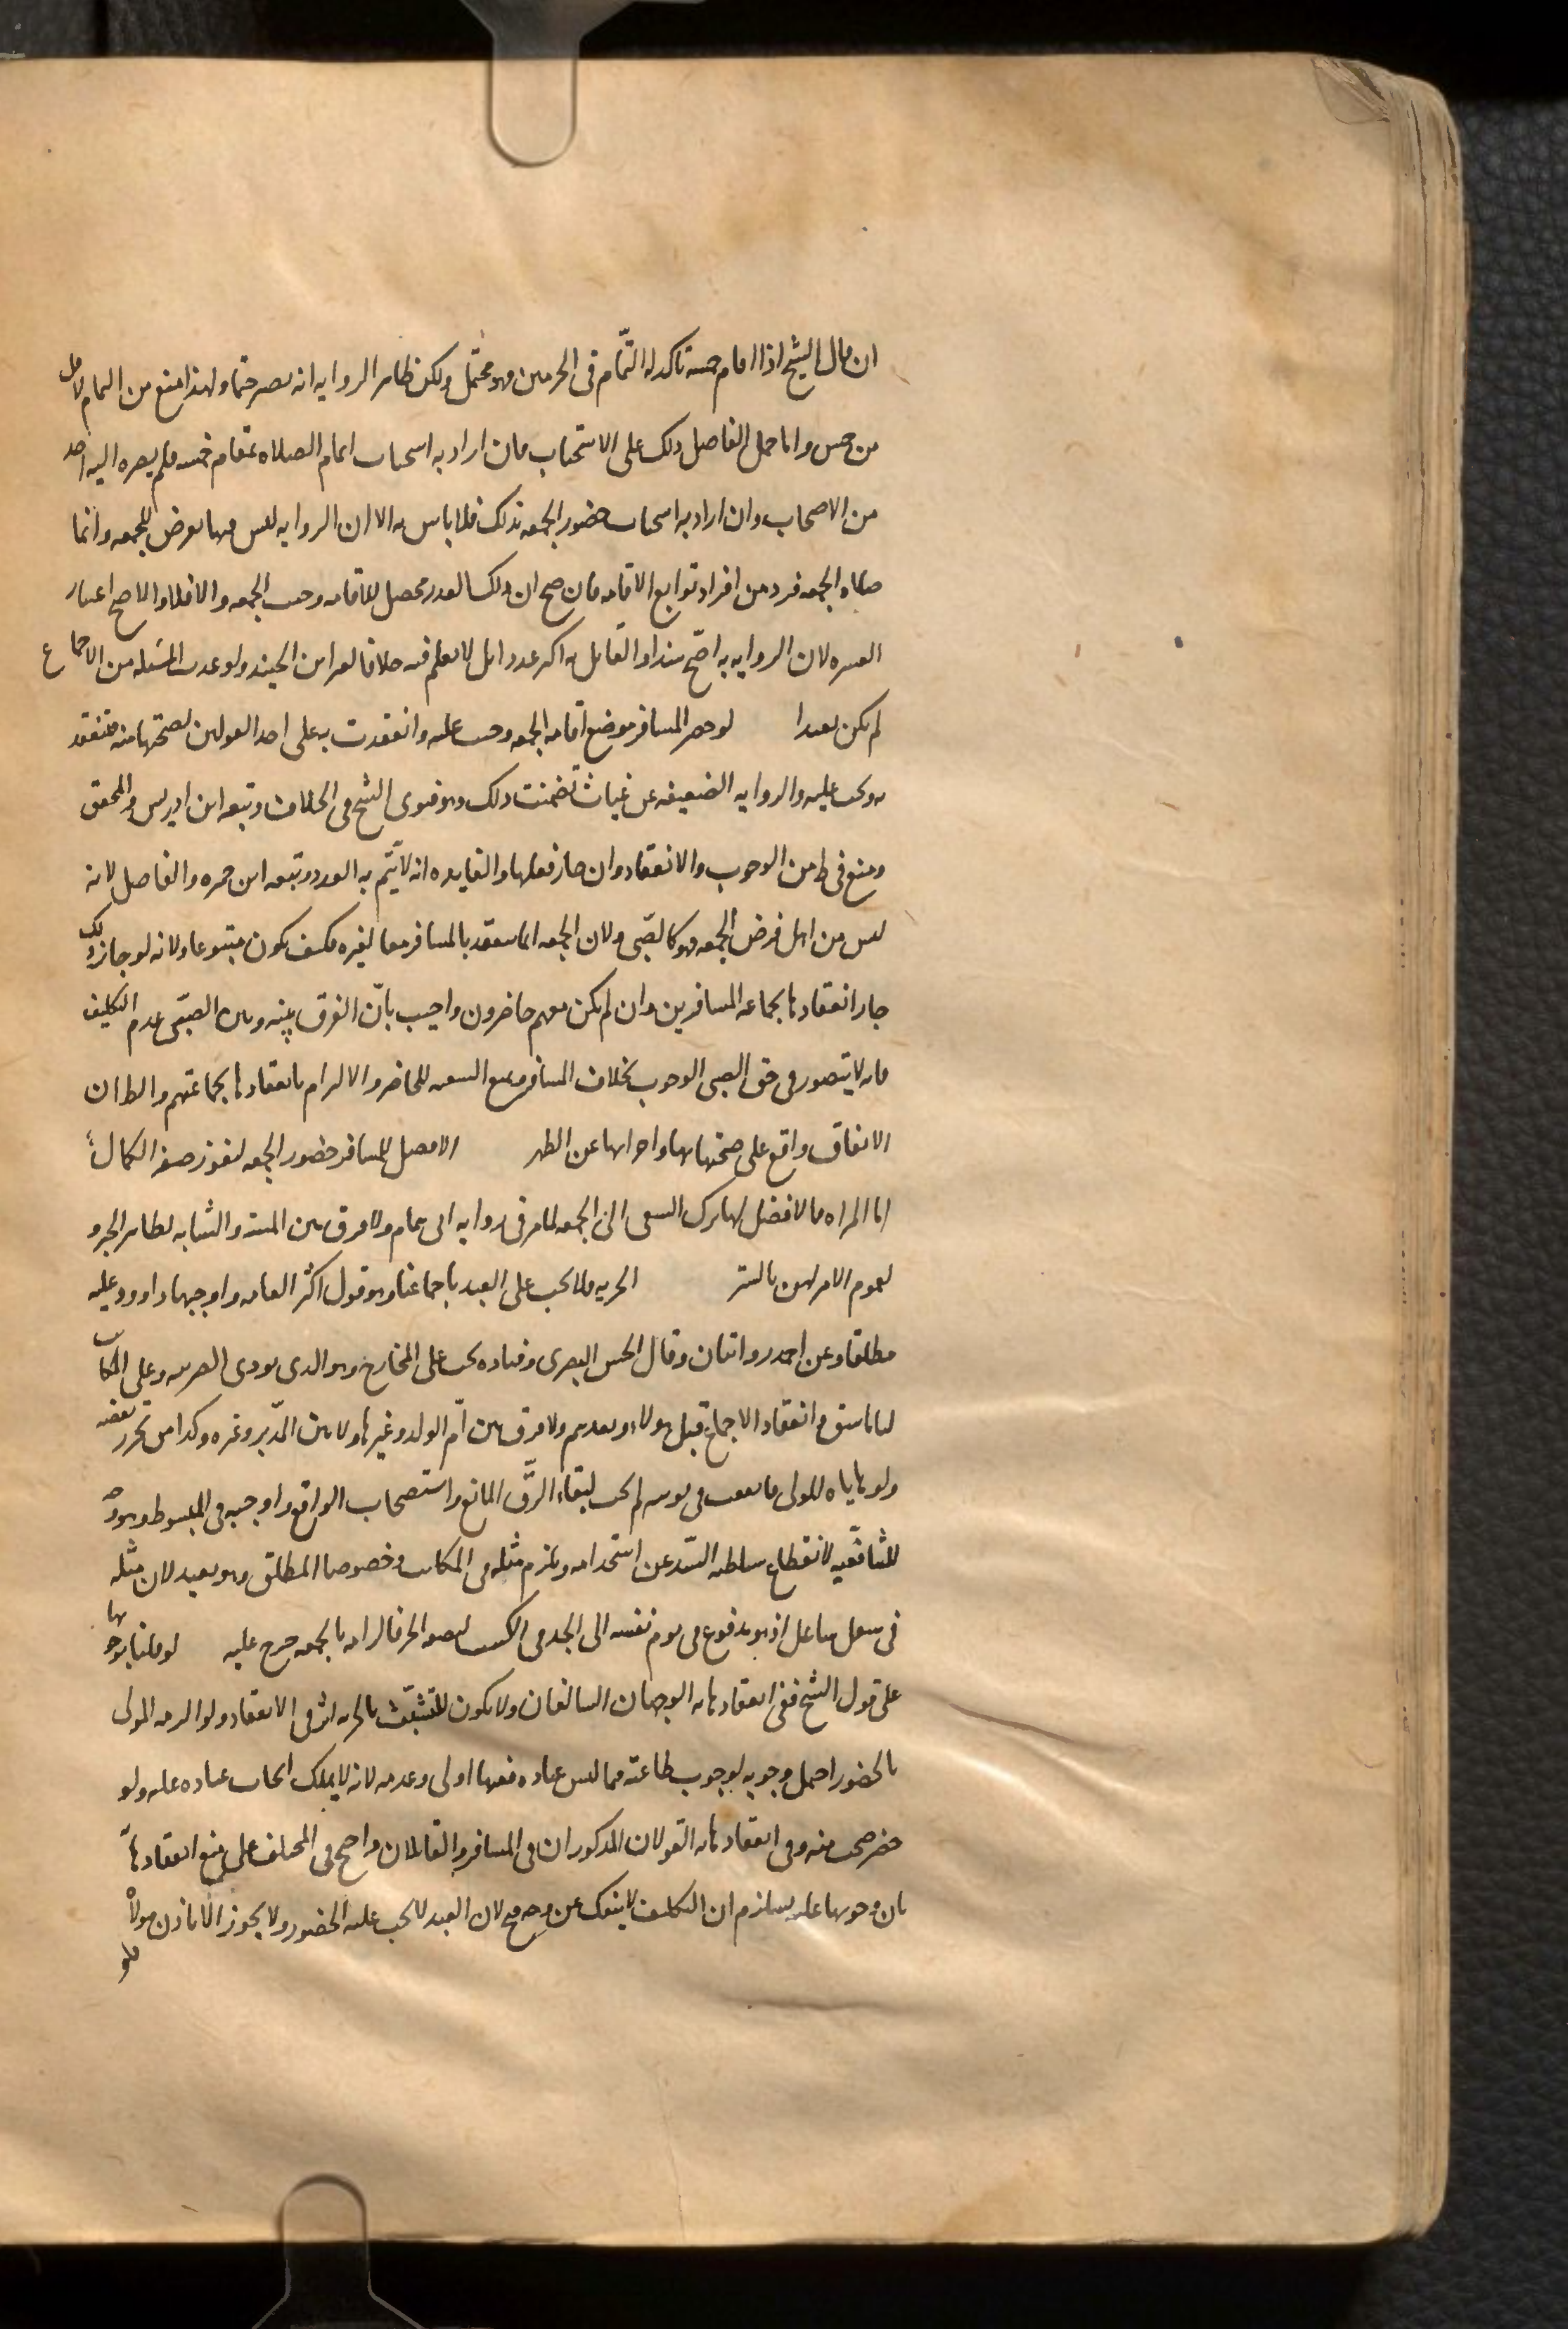 ان قال الشيخ اذا اقام خمسة تاكد له التمام فى الحرمين وهو محتمل ولكن ظاهر الروايه انه يصير حتما ولهذا منع من التمام لاقل
من خمس واما حمل الفاضل ذلك على الاستحباب فان اراد به استحباب اتمام الصلاه بمقام خمسه فلم يصر اليه احد
من الاصحاب وان اراد به استحباب حضور الجمعه بذلك فلا باس به الا ان الروايه ليس فيها تعرض للجمعه وانما
صلاه الجمعه فرد من افراد توابع الاقامه فان صح ان ذلك القدر محصل للاقامه وجبت الجمعه والا فلا والاصح اعتبار
العشره لان الروايه به اصح سندا والقايل به اكثر عددا بل لا نعلم فيه خلافا لغير ابن الجنيد ولو عدت المسئله من الاجماع
لم يكن بعيدا لو حضر المسافر موضع اقامه الجمعه وجبت عليه وانعقدت به على احد القولين لصحتها منه فتنعقد
به وتجب عليه والروايه الضعيفه عن غياث تضمنت ذلك وهو فتوى الشيخ فى الخلاف وتبعه ابن ادريس والمحقق
ومنع فى ط من الوجوب والانعقاد وان جاز فعلها والفايده انه لا يتم به العدد وتبعه ابن حمزه والفاضل لانه
ليس من اهل فرض الجمعه فهو كالصبى ولان الجمعه انما تنعقد بالمسافر معا لغيره فكيف يكون متبوعا ولانه لو جاز ذلك
جاز انعقادها بجماعه المسافرين وان لم يكن معهم حاضرون واجيب بان الفرق بينه وبين الصبى عدم التكليف
فانه لا يتصور فى حق الصبى الوجوب بخلاف المسافر ومنع التبعيه للحاضر والالزام بانعقادها بجماعتهم والظ ان
الاتفاق واقع على صحتها بها واجزائها عن الظهر الافضل للمسافر حضور الجمعه ليفوز بصفه الكمال
اما المراه فالافضل لها ترك السعى الى الجمعه لما مر فى روايه ابى همام ولا فرق بين المسنه والشابه لظاهر الخبر و
لعموم الامر لهن بالستر الحريه فلا تجب على العبد باجماعنا وهو قول اكثر العامه واوجبها داوود عليه
مطلقا وعن احمد روايتان وقال الحسن البصرى وقتاده تجب على المخارج وهو الذى يودى الضريبه وعلى المكاتب
لنا ما سبق وانعقاد الاجماع قبل هولاء وبعدهم ولا فرق بين ام الولد وغيرها ولا بين المدبر وغيره وكذا من تحرر بعضه
ولو هاياه المولى فاتفقت فى نوبته لم تجب لبقاء الرق المانع واستصحاب الواقع واوجبه فى المبسوط وهو وجه
للشافعيه لانقطاع سلطنه السيد عن استخدامه ويلزم مثله فى المكاتب وخصوصا المطلق وهو بعيد لان مثله
فى شغل شاغل اذ هو مدفوع فى يوم نفسه الى الجد فى الكسب لنصفه الحر فالزامه بالجمعه حرج عليه لو قلنا بوجوبها
على قول الشيخ ففى انعقادها به الوجهان السالفان ولا يكون للتشبث بالحريه اثر فى الانعقاد ولو الزمه المولى
بالحضور احتمل وجوبه لوجوب طاعته فيما ليس عباده ففيها اولى وعدمه لانه لا يملك ايجاب عباده عليه ولو
حضر صحت منه وفى انعقادها به القولان المذكوران فى المسافر والقايلان واحتج فى المختلف على منع انعقادها
بان وجوبها عليه يستلزم ان التكليف لا ينفك عن وجه قبح لان العبد لا تجب عليه الحضور ولا يجوز الا باذن مولاه
فلو